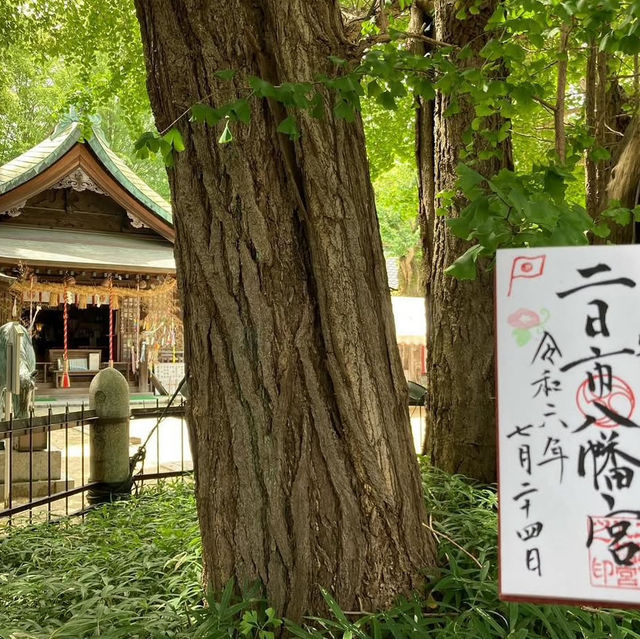 二日市八幡宮
令和六年
七月二十四日